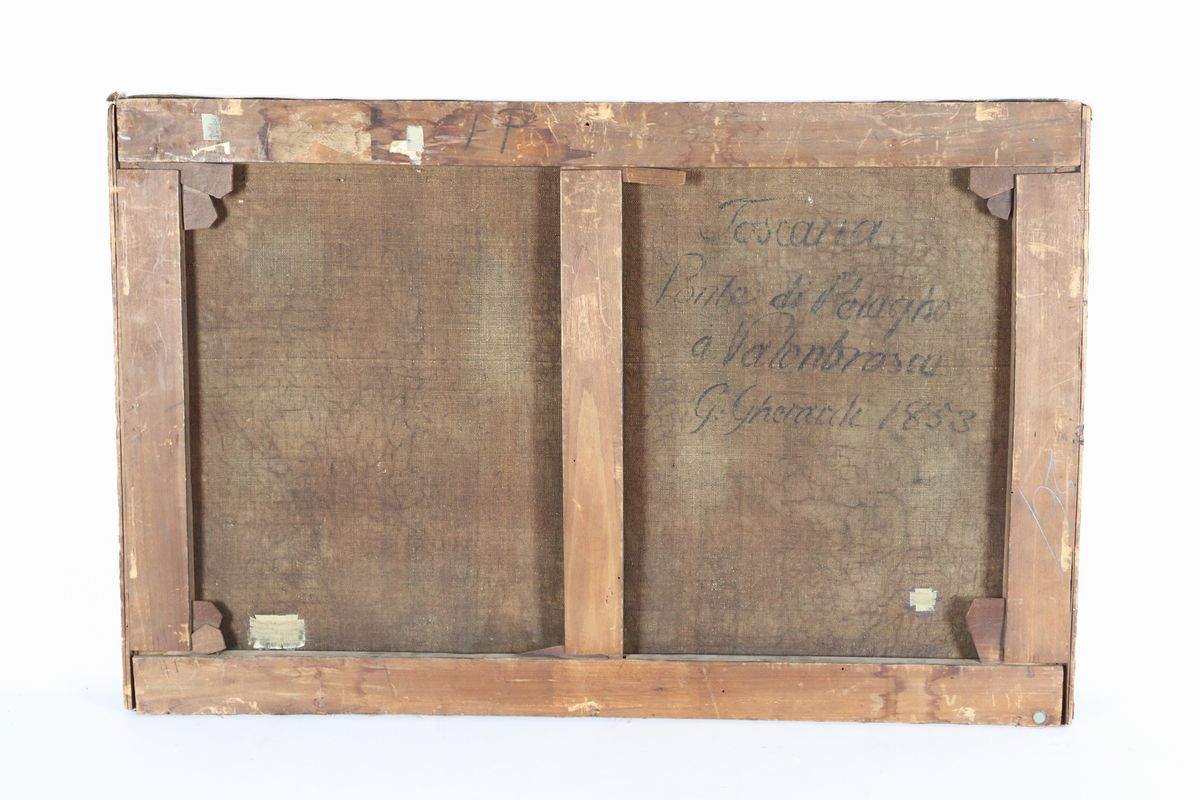 Toscana
Ponte di Pelagho
a Valonbrosa
G. Gherardi 1853